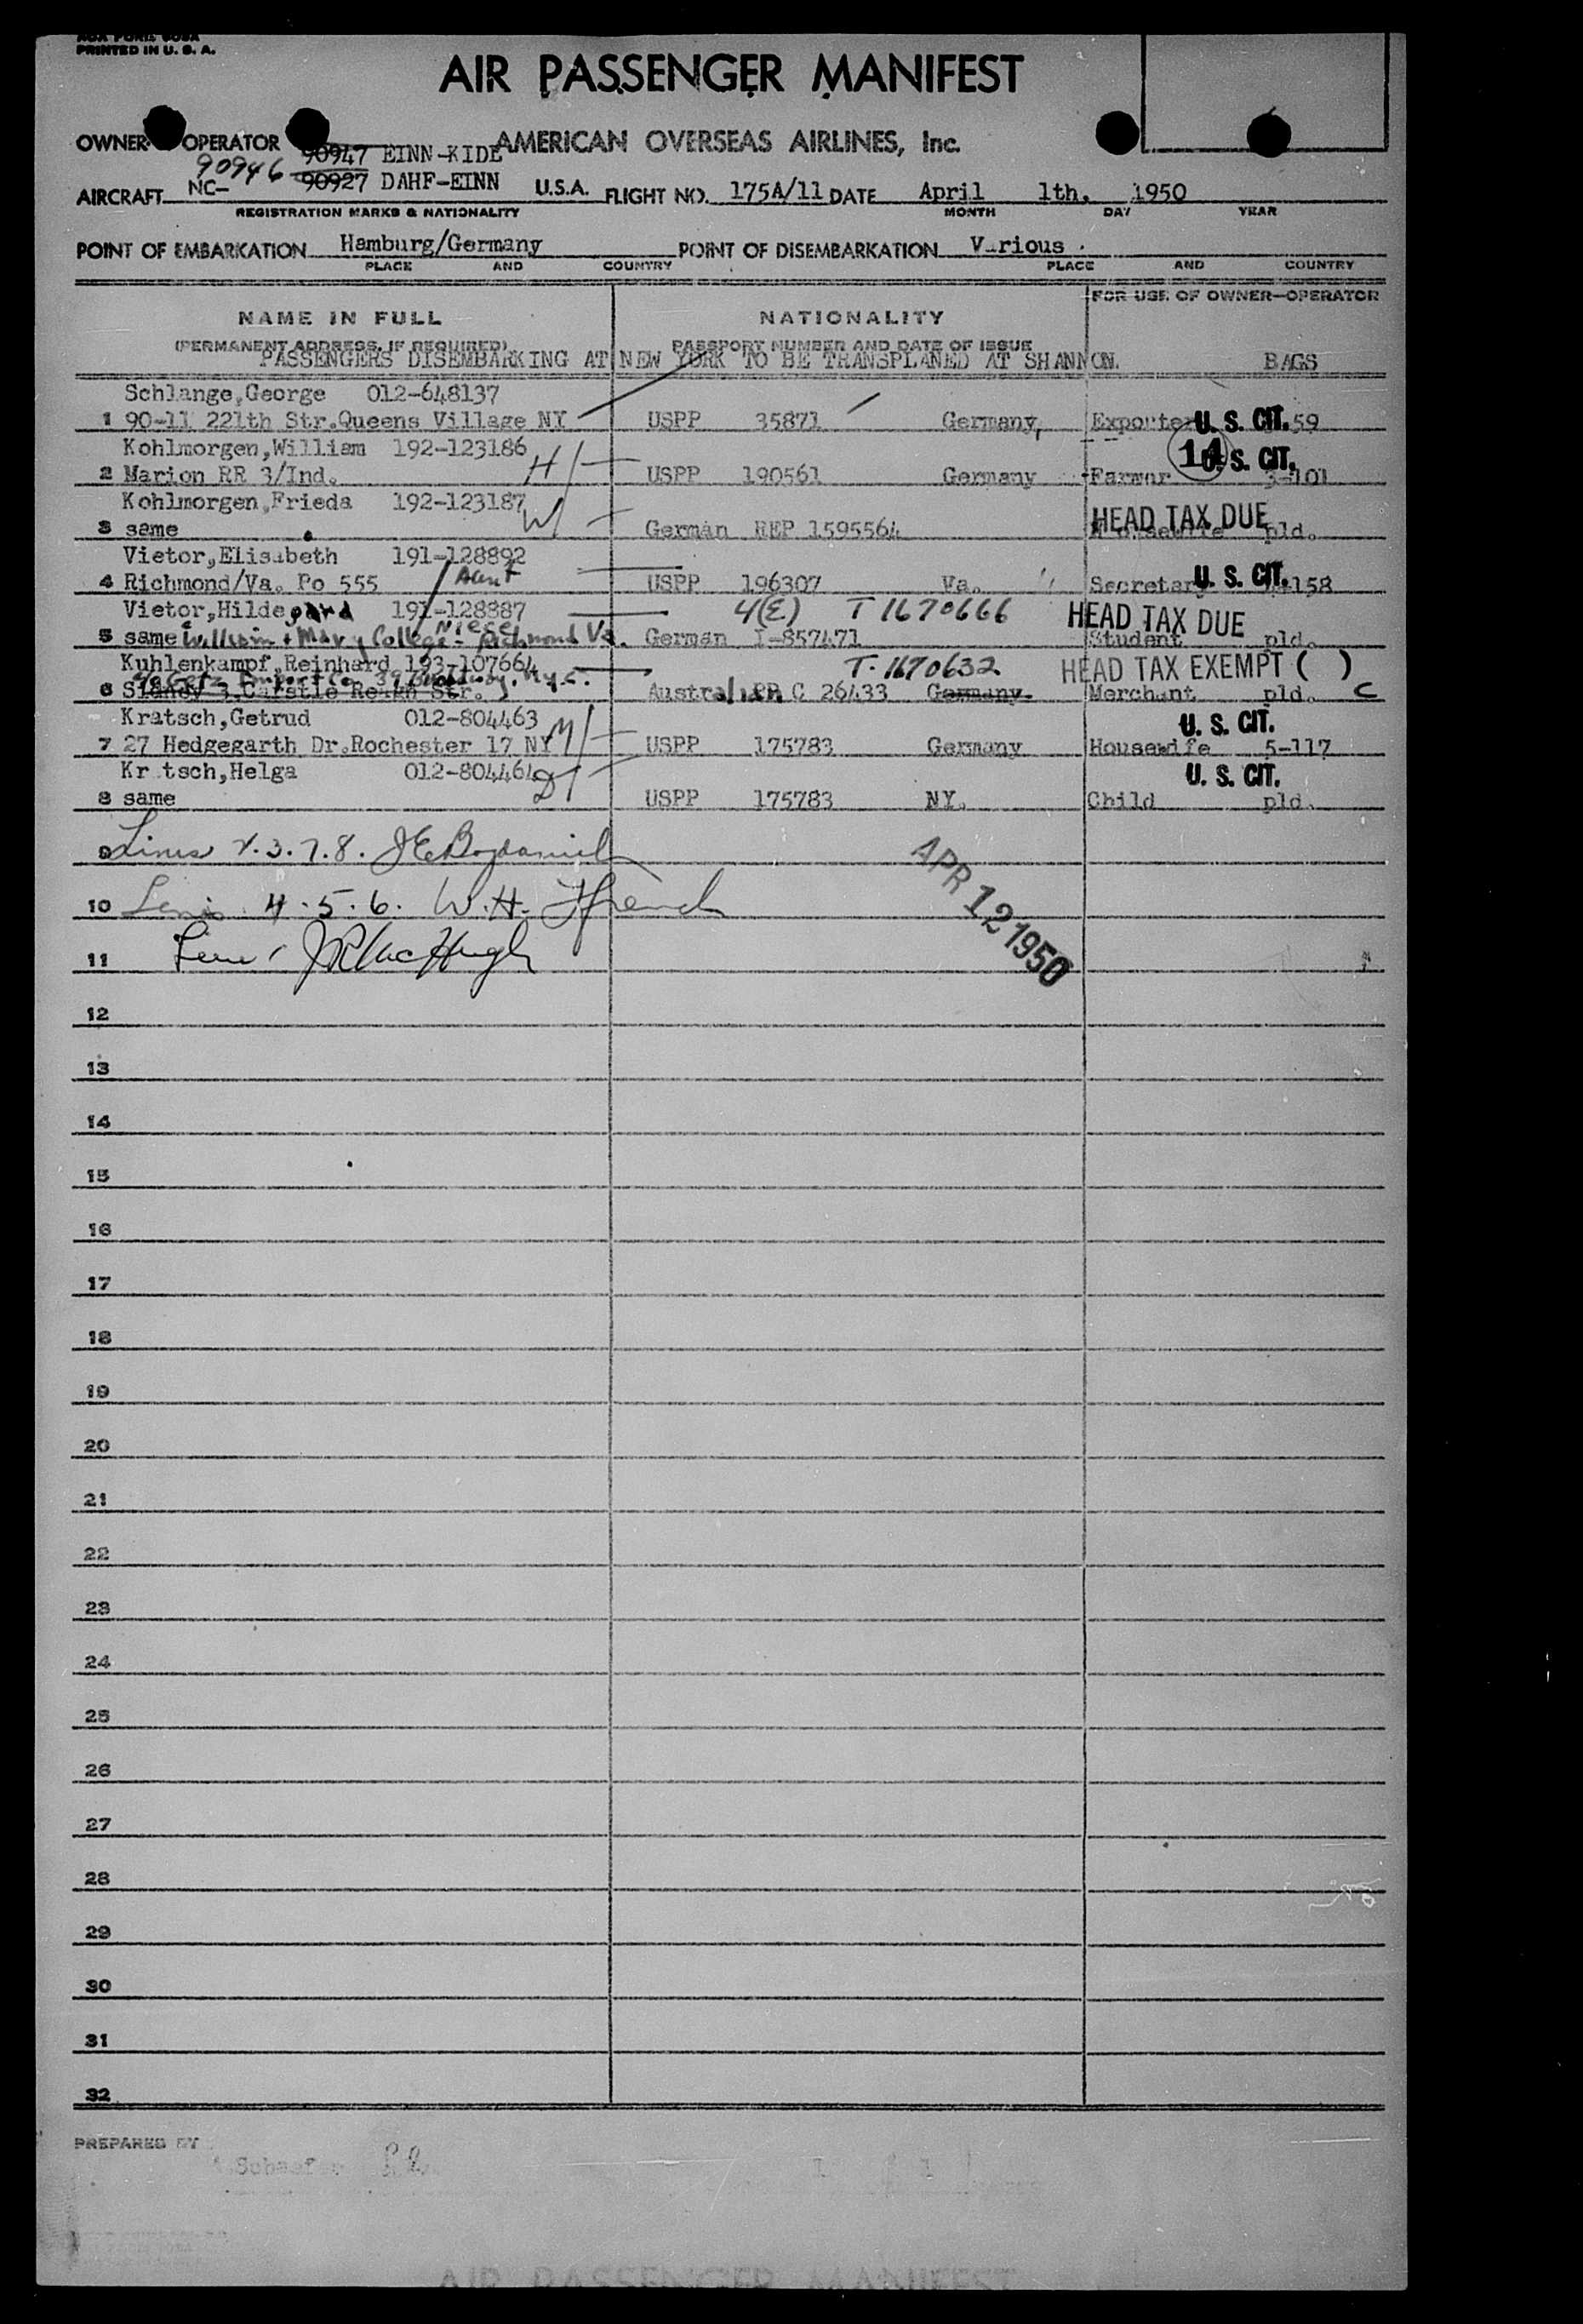 PRINTED IN U. S. A.
AIR PASSENGER MANIFEST
OWNER OPERATOR AMERICAN OVERSEAS AIRLINES, Inc.
90947 EINN-KIDE
90946
AIRCRAFT NC- 90927 DAHF-EINN U.S.A. FLIGHT NO. 175A/11 DATE April 1th. 1950
REGISTRATION MARKS & NATIONALITY MONTH DAY YEAR
POINT OF EMBARKATION Hamburg/Germany POINT OF DISEMBARKATION V rious
PLACE AND COUNTRY PLACE AND COUNTRY
FOR USE OF OWNER-OPERATOR
NAME IN FULL NATIONALITY
(PERMANENT ADDRESS, IF REQUIRED) PASSPORT NUMBER AND DATE OF ISSUE
PASSENGERS DISEMBARKING AT NEW YORK TO BE TRANSPLANED AT SHANNON. BAGS
Schlange,George 012-648137
1 90-11 221th Str.Queens Village NY USPP 35871 Germany, Exporter U. S. CIT. 59
Kohlmorgen,William 192-123186 H U. S. CIT.
2 Marion RR 3/Ind. USPP 190561 Germany Farmer 3-101
Kohlmorgen,Frieda 192-123187 W HEAD TAX DUE
3 same German REP 1595564 pld.
Vietor,Elisabeth 191-128892
4 Richmond/Va. Po 555 Aunt USPP 196307 Va. Secretary U. S. CIT. 158
Vietor,Hildegard 191-128887 4(E) T 1670666 HEAD TAX DUE
Niece
5 same William + Mary College - Richmond Va. German I-857471 Student pld.
Kuhlenkampf,Reinhard 193-107664 T-1670632 HEAD TAX EXEMPT ( )
c/o Getz Import Co. 39 Broadway. N.Y.C.
6 Sidney Str. Australian PP C 26433 Germany. Merchant pld. C
Kratsch,Getrud 012-804463 M U. S. CIT.
7 27 Hedgegarth Dr.Rochester 17 NY USPP 175783 Germany Housewife 5-117
Kr tsch,Helga 012-804464 D U. S. CIT.
8 same USPP 175783 NY. Child pld.
9 Lines 2.3.7.8.
APR 12 1950
10 4.5.6. W.H. French
11 J R MacHugh
12
13
14
15
16
17
18
19
20
21
22
23
24
25
26
27
28
29
30
31
32
PREPARED BY
AIR PASSENGER MANIFEST